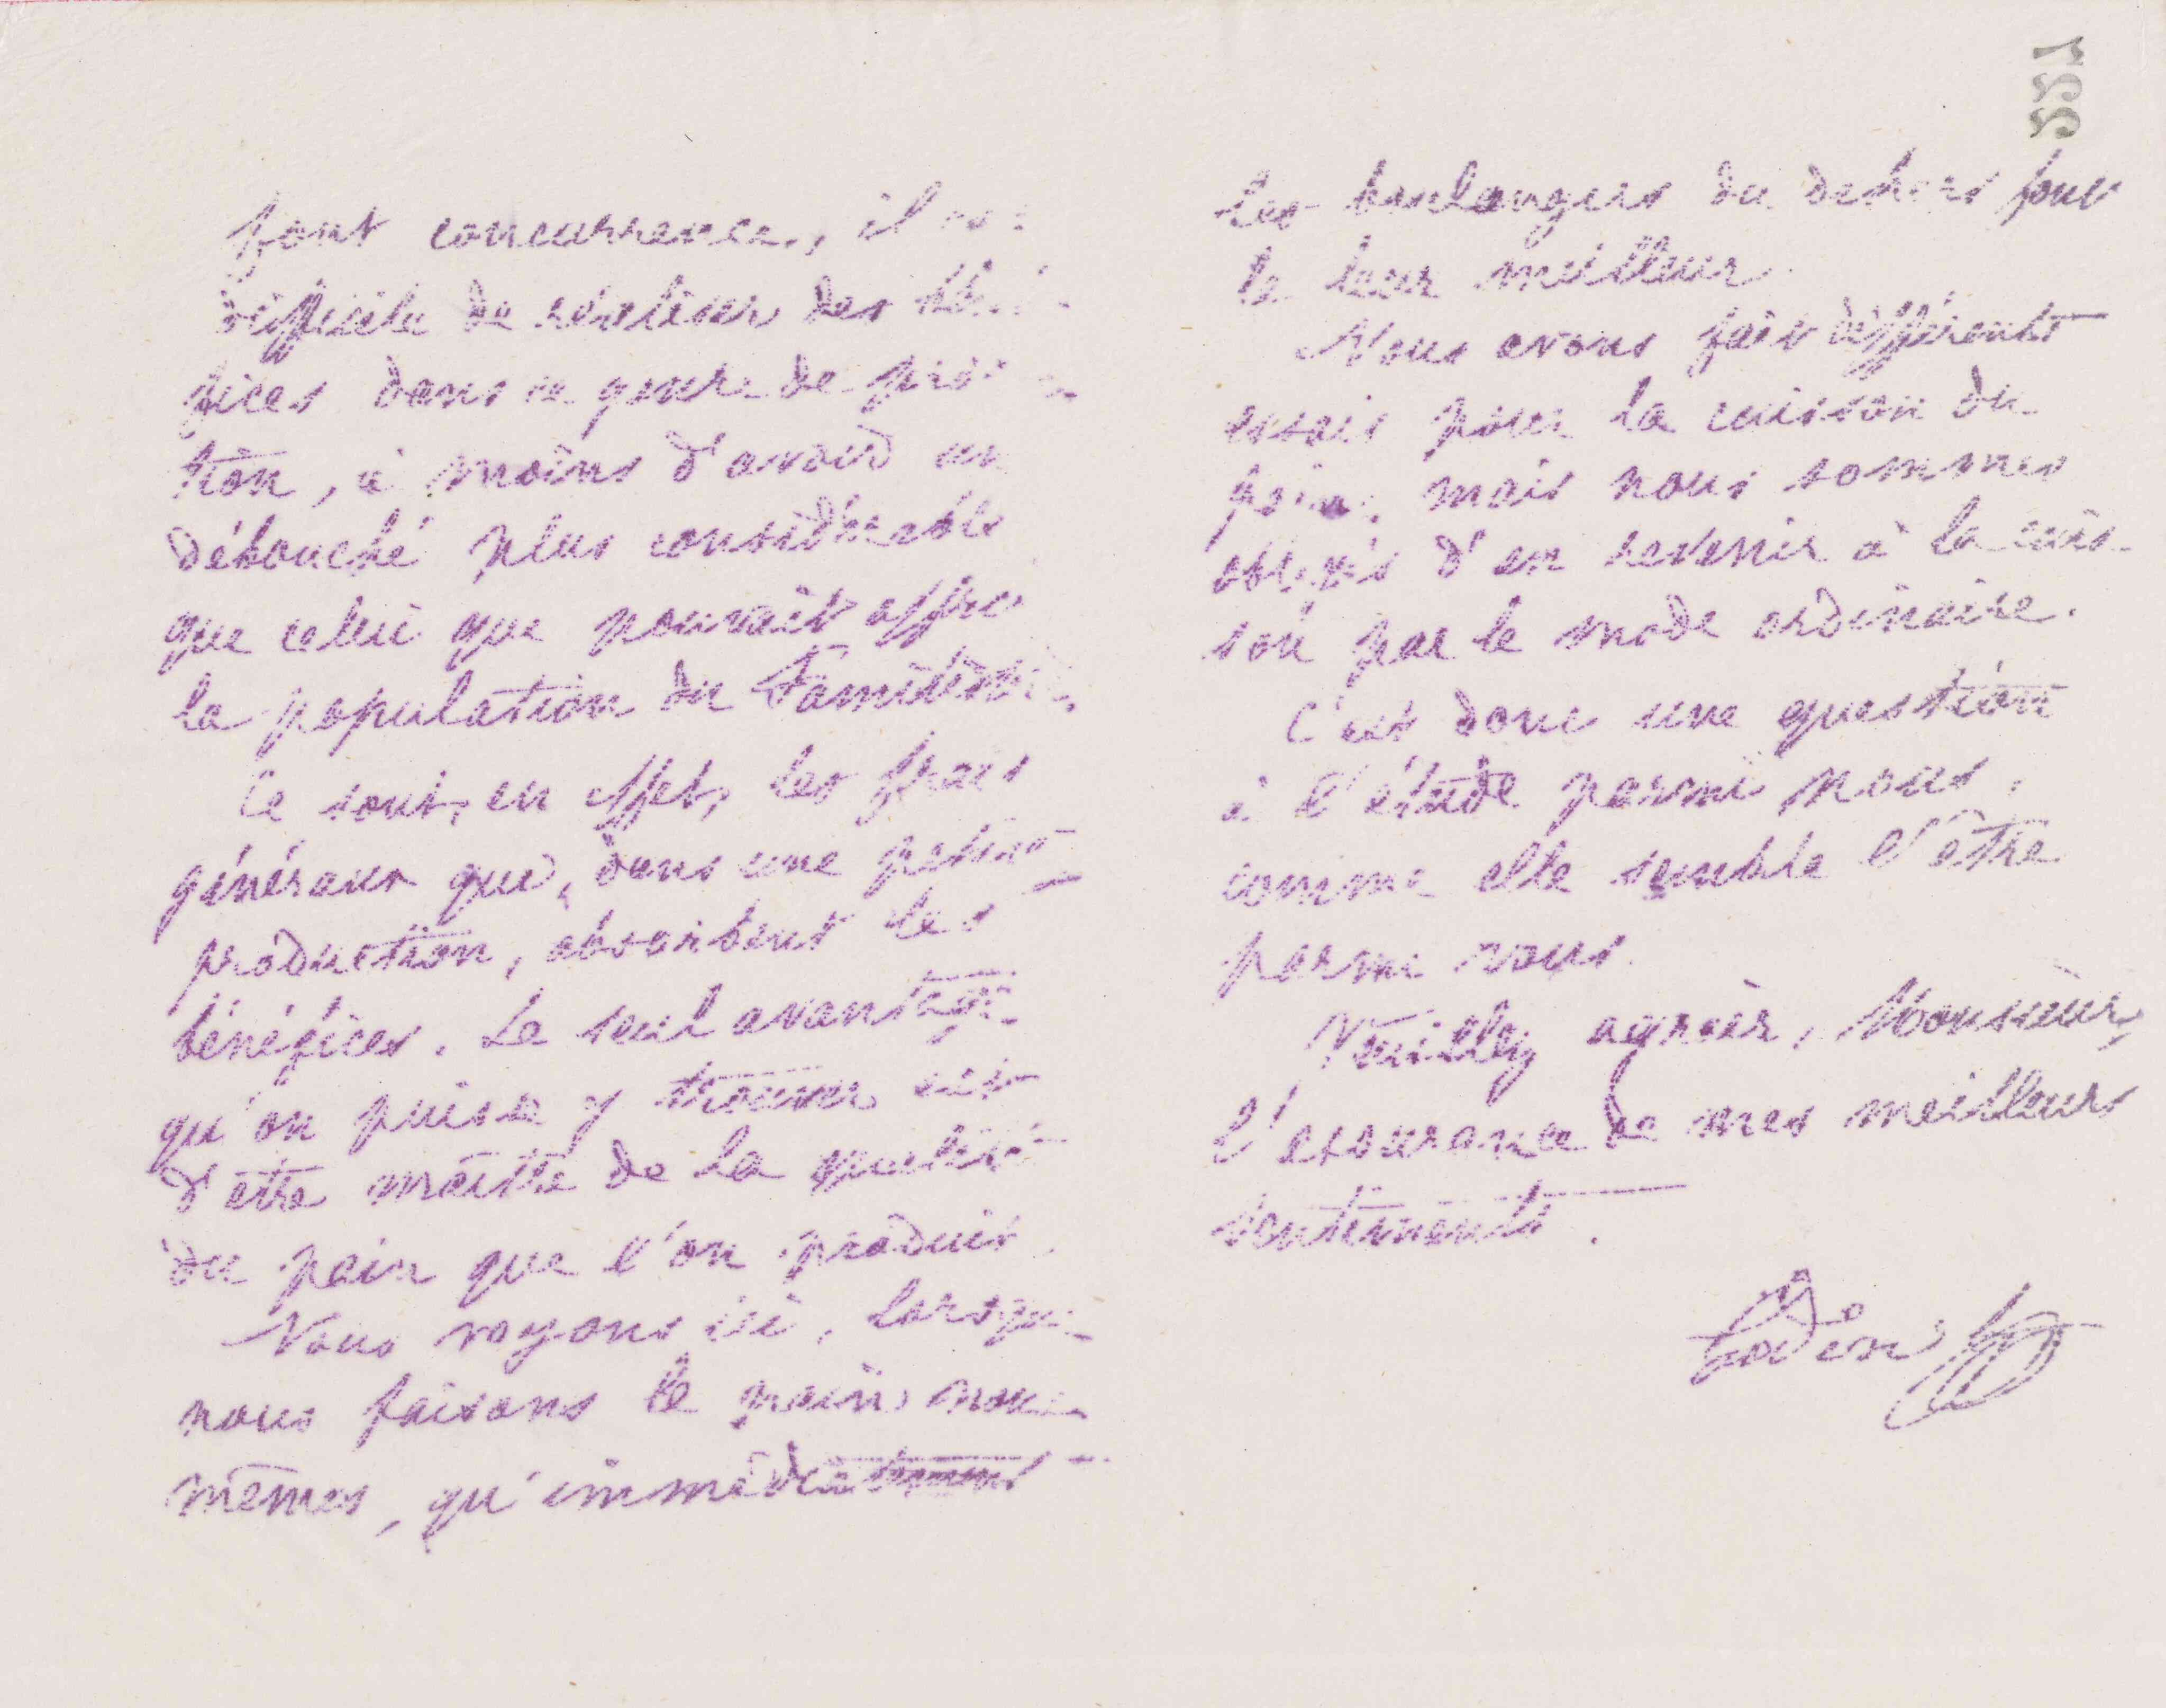 font concurrence, il es
difficile de réaliser des béné
fices dans ce genre de pro
tion, à moins d'avoir un
débouché plus considérable
que celui que pourrait offrir
la population du Familistère.
Ce sont, en effet, les frais
généraux qui, dans une petite
production, absorbent les
bénéfices. Le seul avantage
qu'on puisse y trouver est
d'être maître de la qualité
du pain que l'on produit.
Nous voyons ici, lorsque
nous faisons le pain nous
mêmes, qu'immédiatement
les boulangers du dehors font
le leur meilleur.
Nous avons fait différents
essais pour la cuisson du
pain, mais nous sommes
obligés d'en revenir à la cuis-
son par le mode ordinaire.
C'est donc une question
à l'étude parmi nous,
comme elle semble l'être
parmi vous.
Veuillez agréer, Monsieur,
l'assurance de mes meilleurs
sentiments.
Godin